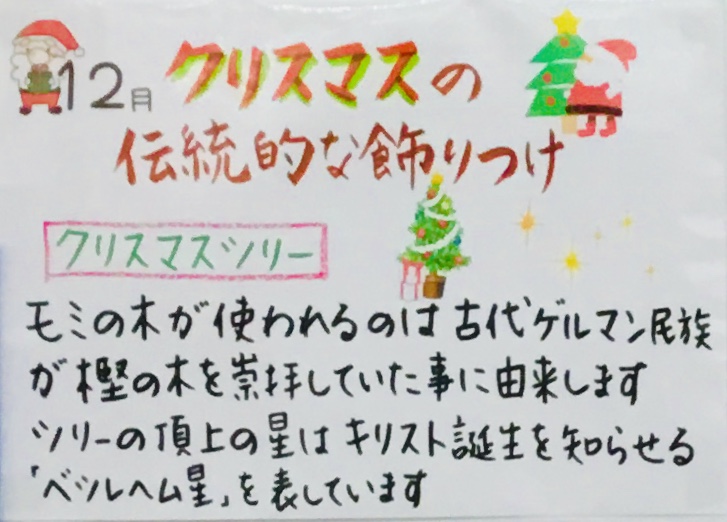 12月 クリスマスの
伝統的な飾りつけ
クリスマスツリー
モミの木が使われるのは古代ゲルマン民族
が樫の木を崇拝していた事に由来します
ツリーの頂上の星はキリスト誕生を知らせる
「ベツレヘム星」を表しています